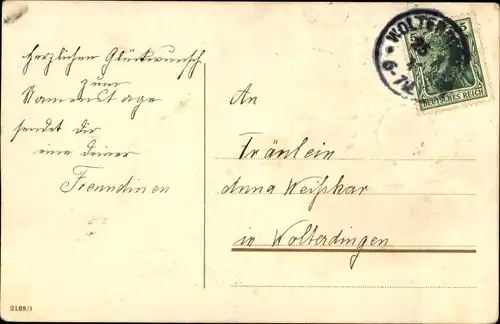 herzlichen Glückwunsch
zum
Namenstage
sendet dir
eine deiner
Freundinen
An
Fräulein
Anna Weißhar
in Wolterdingen
WOLTER
DEUTSCHES REICH
5
2169/I